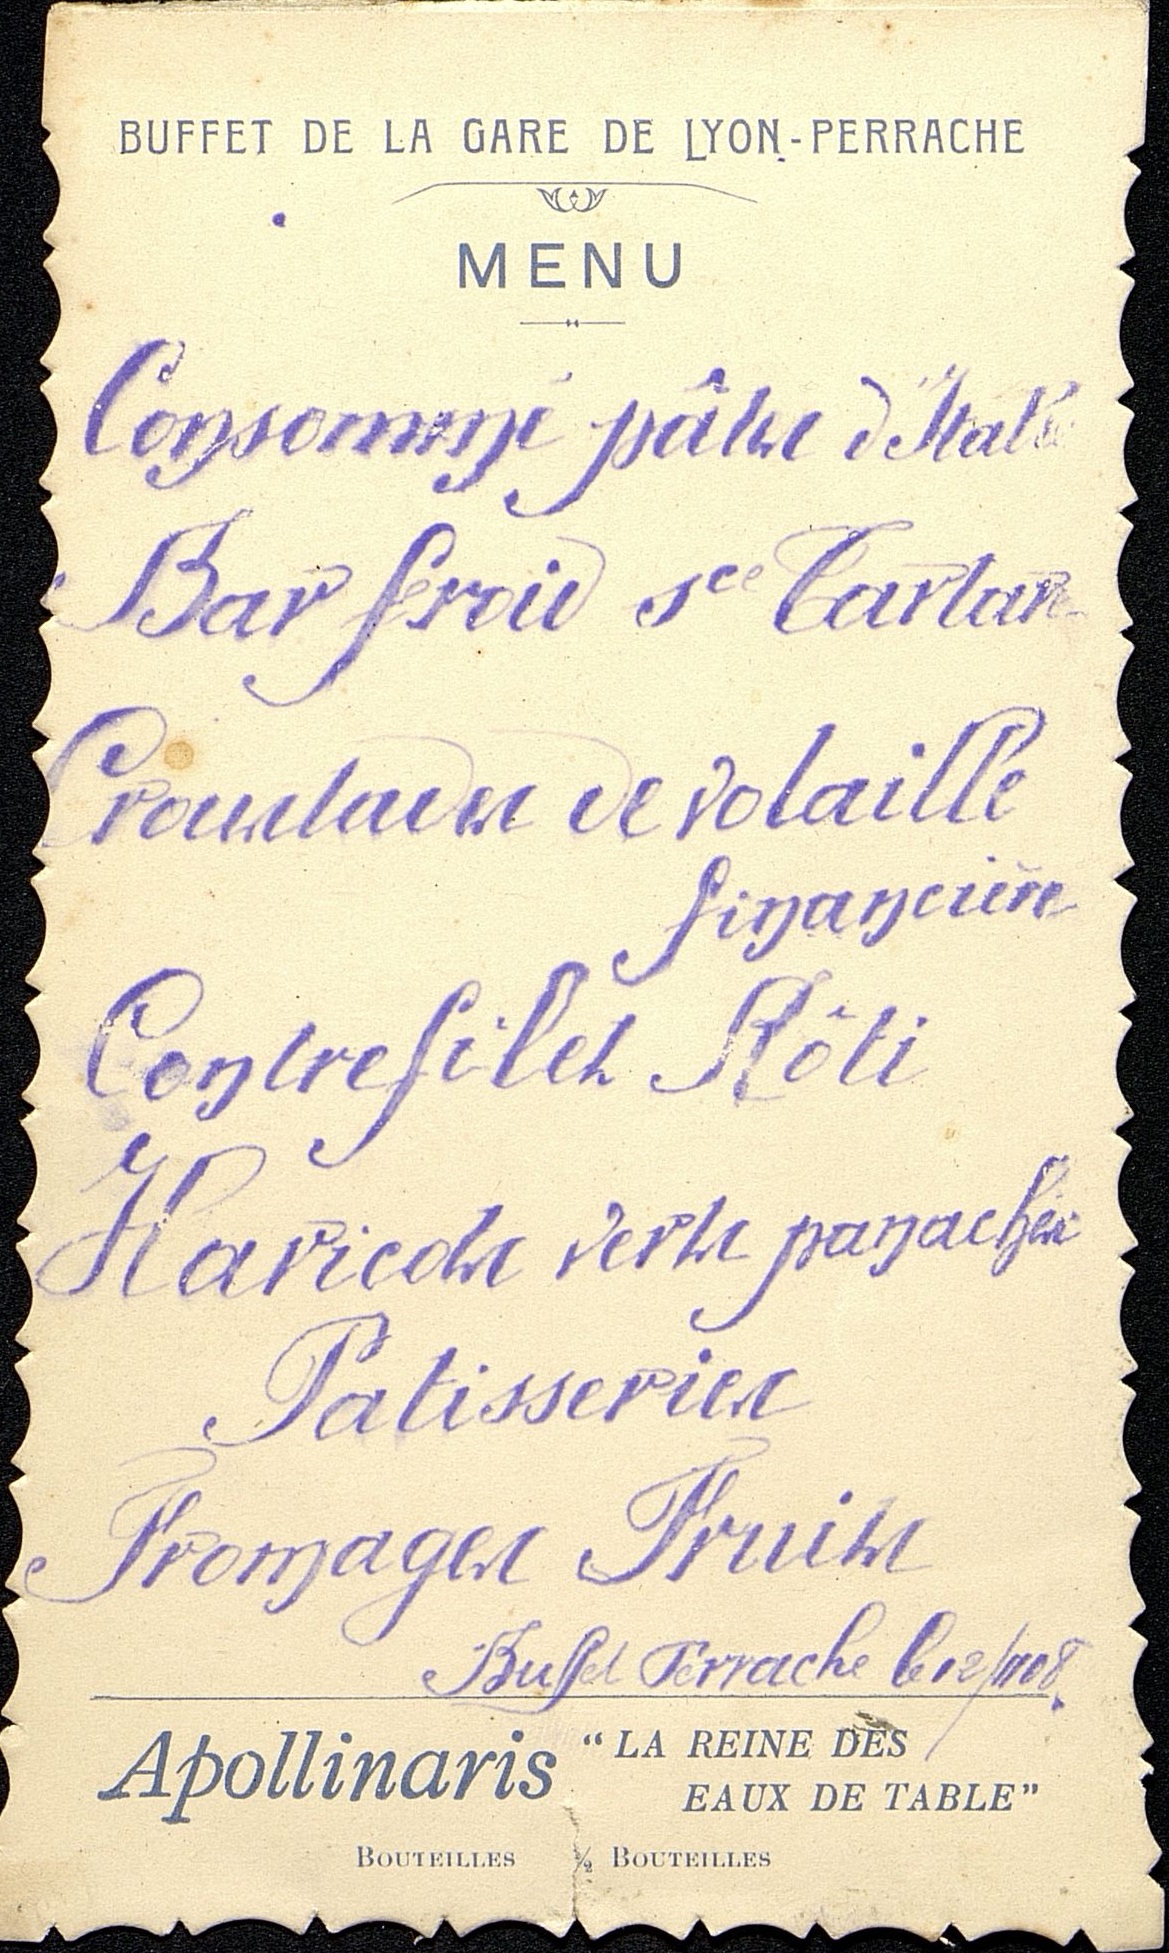 BUFFET DE LA GARE DE LYON-PERRACHE
MENU
Consommé pâtes d'Italie
Bar froid sce Tartare
Croustades de volaille
financière
Contrefilet Rôti
Haricots verts panachés
Patisseries
Fromages Fruits
Buffet Perrache le 12/1908
Apollinaris "LA REINE DES
EAUX DE TABLE"
BOUTEILLES ½ BOUTEILLES